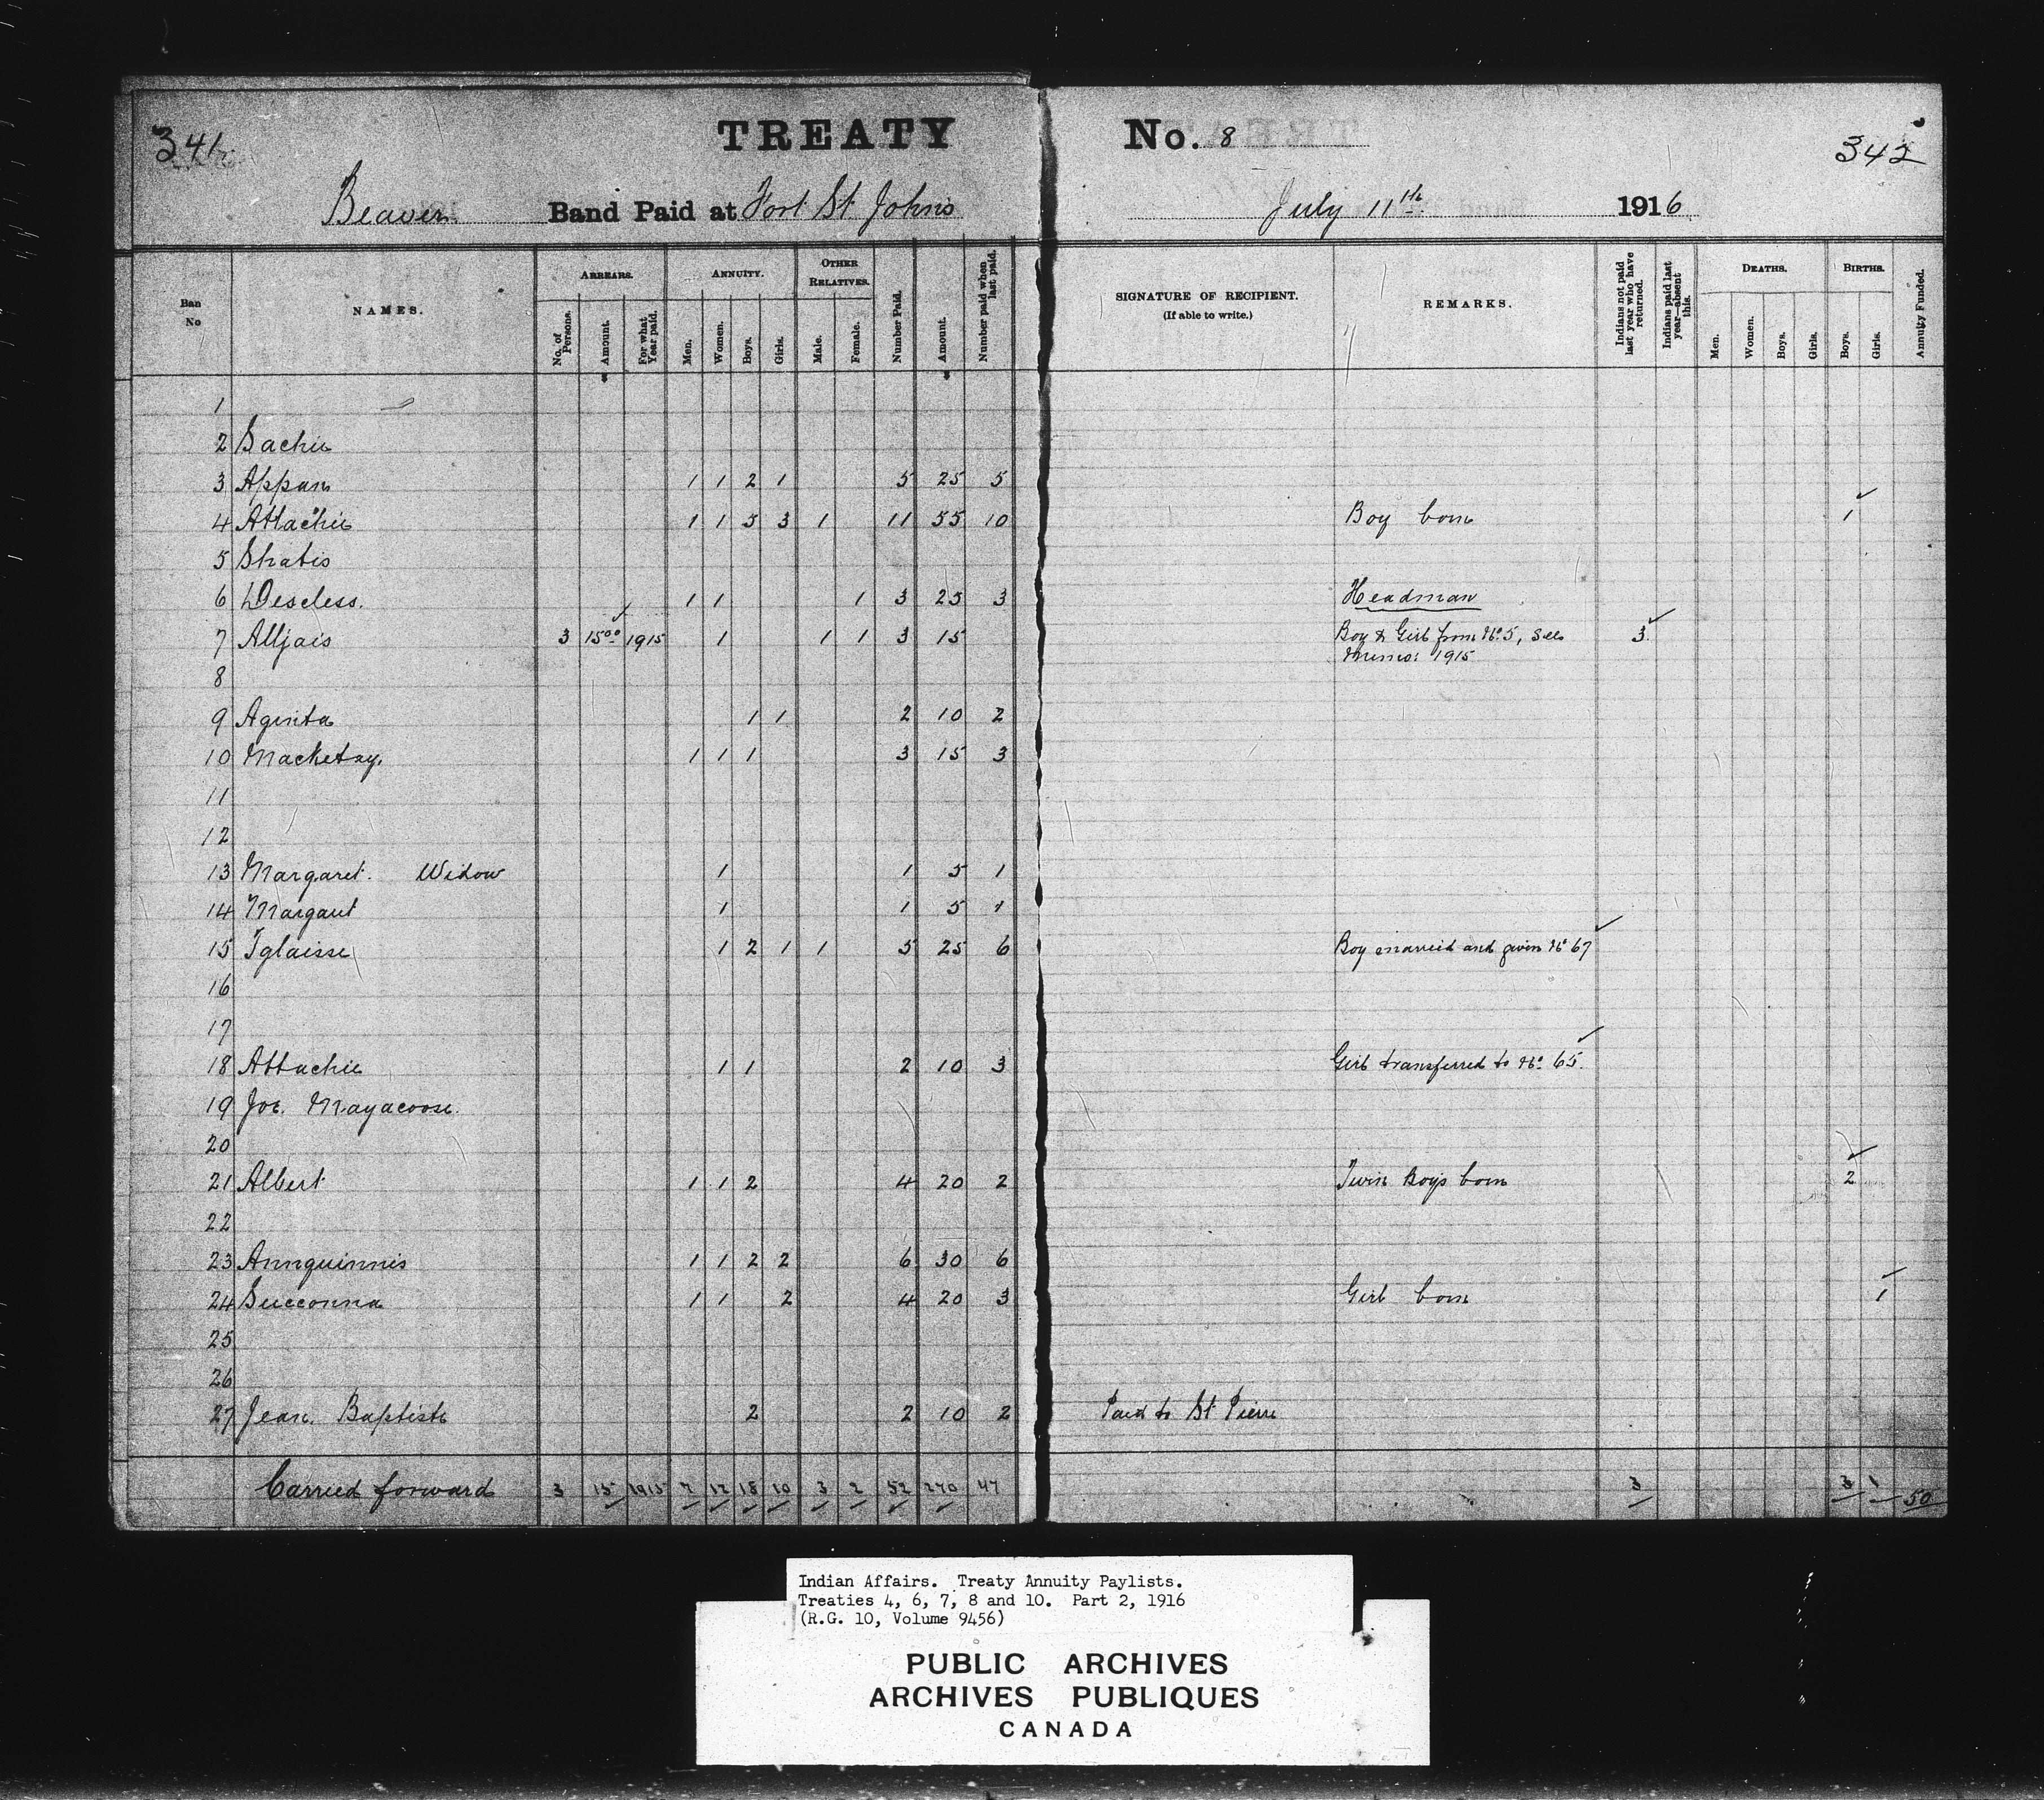 341
TREATY No. 8
342
Beaver Band Paid at Fort St Johns July 11th 1916
Ban No
NAMES.
ARREARS.
No. of Persons.
Amount.
For what Year paid.
ANNUITY.
Men.
Women.
Boys.
Girls.
OTHER RELATIVES.
Male.
Female.
Number Paid.
Amount.
Number paid when last paid.
SIGNATURE OF RECIPIENT.
(If able to write.)
REMARKS.
Indians not paid last year who have returned.
Indians paid last year—absent this.
DEATHS.
Men.
Women.
Boys.
Girls.
BIRTHS.
Boys.
Girls.
Annuity Funded.
1
2 Sachie
3 Appan 1 1 2 1 5 25 5
4 Attachie 1 1 5 3 1 11 55 10 Boy born 1
5 Shatis
6 Deseless. 1 1 1 3 25 3 Headman
7 Alljais 3 15.00 1915 1 1 1 3 15 Boy & Girl from No. 5, see 3
Memo: 1915
8
9 Aginta 1 1 2 10 2
10 Macketay. 1 1 1 3 15 3
11
12
13 Margaret. Widow 1 1 5 1
14 Margaut 1 1 5 1
15 Iglaisse 1 2 1 1 5 25 6 Boy married and given No 67
16
17
18 Attachie 1 1 2 10 3 Girl transferred to No. 65.
19 Joe. Mayacoose.
20
21 Albert 1 1 2 4 20 2 Twin Boys born 2
22
23 Annquinnis 1 1 2 2 6 30 6
24 Succonna 1 1 2 4 20 3 Girl born 1
25
26
27 Jean. Baptiste 2 2 10 2 Paid to St Pierre
Carried forward 3 15 1915 7 12 18 10 3 2 52 270 47 3 3 1 50
Indian Affairs. Treaty Annuity Paylists.
Treaties 4, 6, 7, 8 and 10. Part 2, 1916
(R.G. 10, Volume 9456)
PUBLIC ARCHIVES
ARCHIVES PUBLIQUES
CANADA